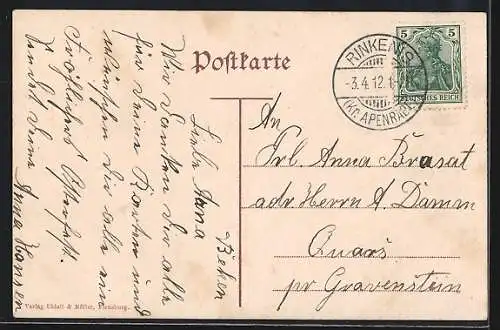 Postkarte
5 5
DEUTSCHES REICH
RINKENIS
-3.4.12.1
(Kr. APENRADE)
An
Frl. Anna Brasat
adr Herrn A. Damm
Quars
pr Gravenstein
Liebe Anna
Wir danken Dir alle
für deine Karten und
wünschen Dir alle ein
Fröhliches Osterfest.
sendet deine
Anna Hansen
Verlag Uldall & Möller, Flensburg.